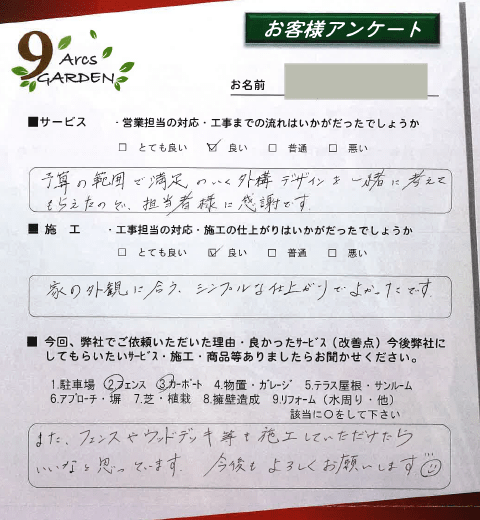 9 Arcs
GARDEN
お客様アンケート
お名前
■サービス ・営業担当の対応・工事までの流れはいかがだったでしょうか
□ とても良い ☑ 良い □ 普通 □ 悪い
予算の範囲で満足のいく外構デザインを一緒に考えて
もらえたので、担当者様に感謝です。
■施 工 ・工事担当の対応・施工の仕上がりはいかがだったでしょうか
□ とても良い ☑ 良い □ 普通 □ 悪い
家の外観に合う、シンプルな仕上がりでよかったです。
■ 今回、弊社でご依頼いただいた理由・良かったサービス（改善点）今後弊社に
してもらいたいサービス・施工・商品等ありましたらお聞かせください。
1.駐車場 2.フェンス 3.カーポート 4.物置・ガレージ 5.テラス屋根・サンルーム
6.アプローチ・塀 7.芝・植栽 8.擁壁造成 9.リフォーム（水周り・他）
該当に○をして下さい
また、フェンスやウッドデッキ等も施工していただけたら
いいなと思っています。 今後もよろしくお願いします